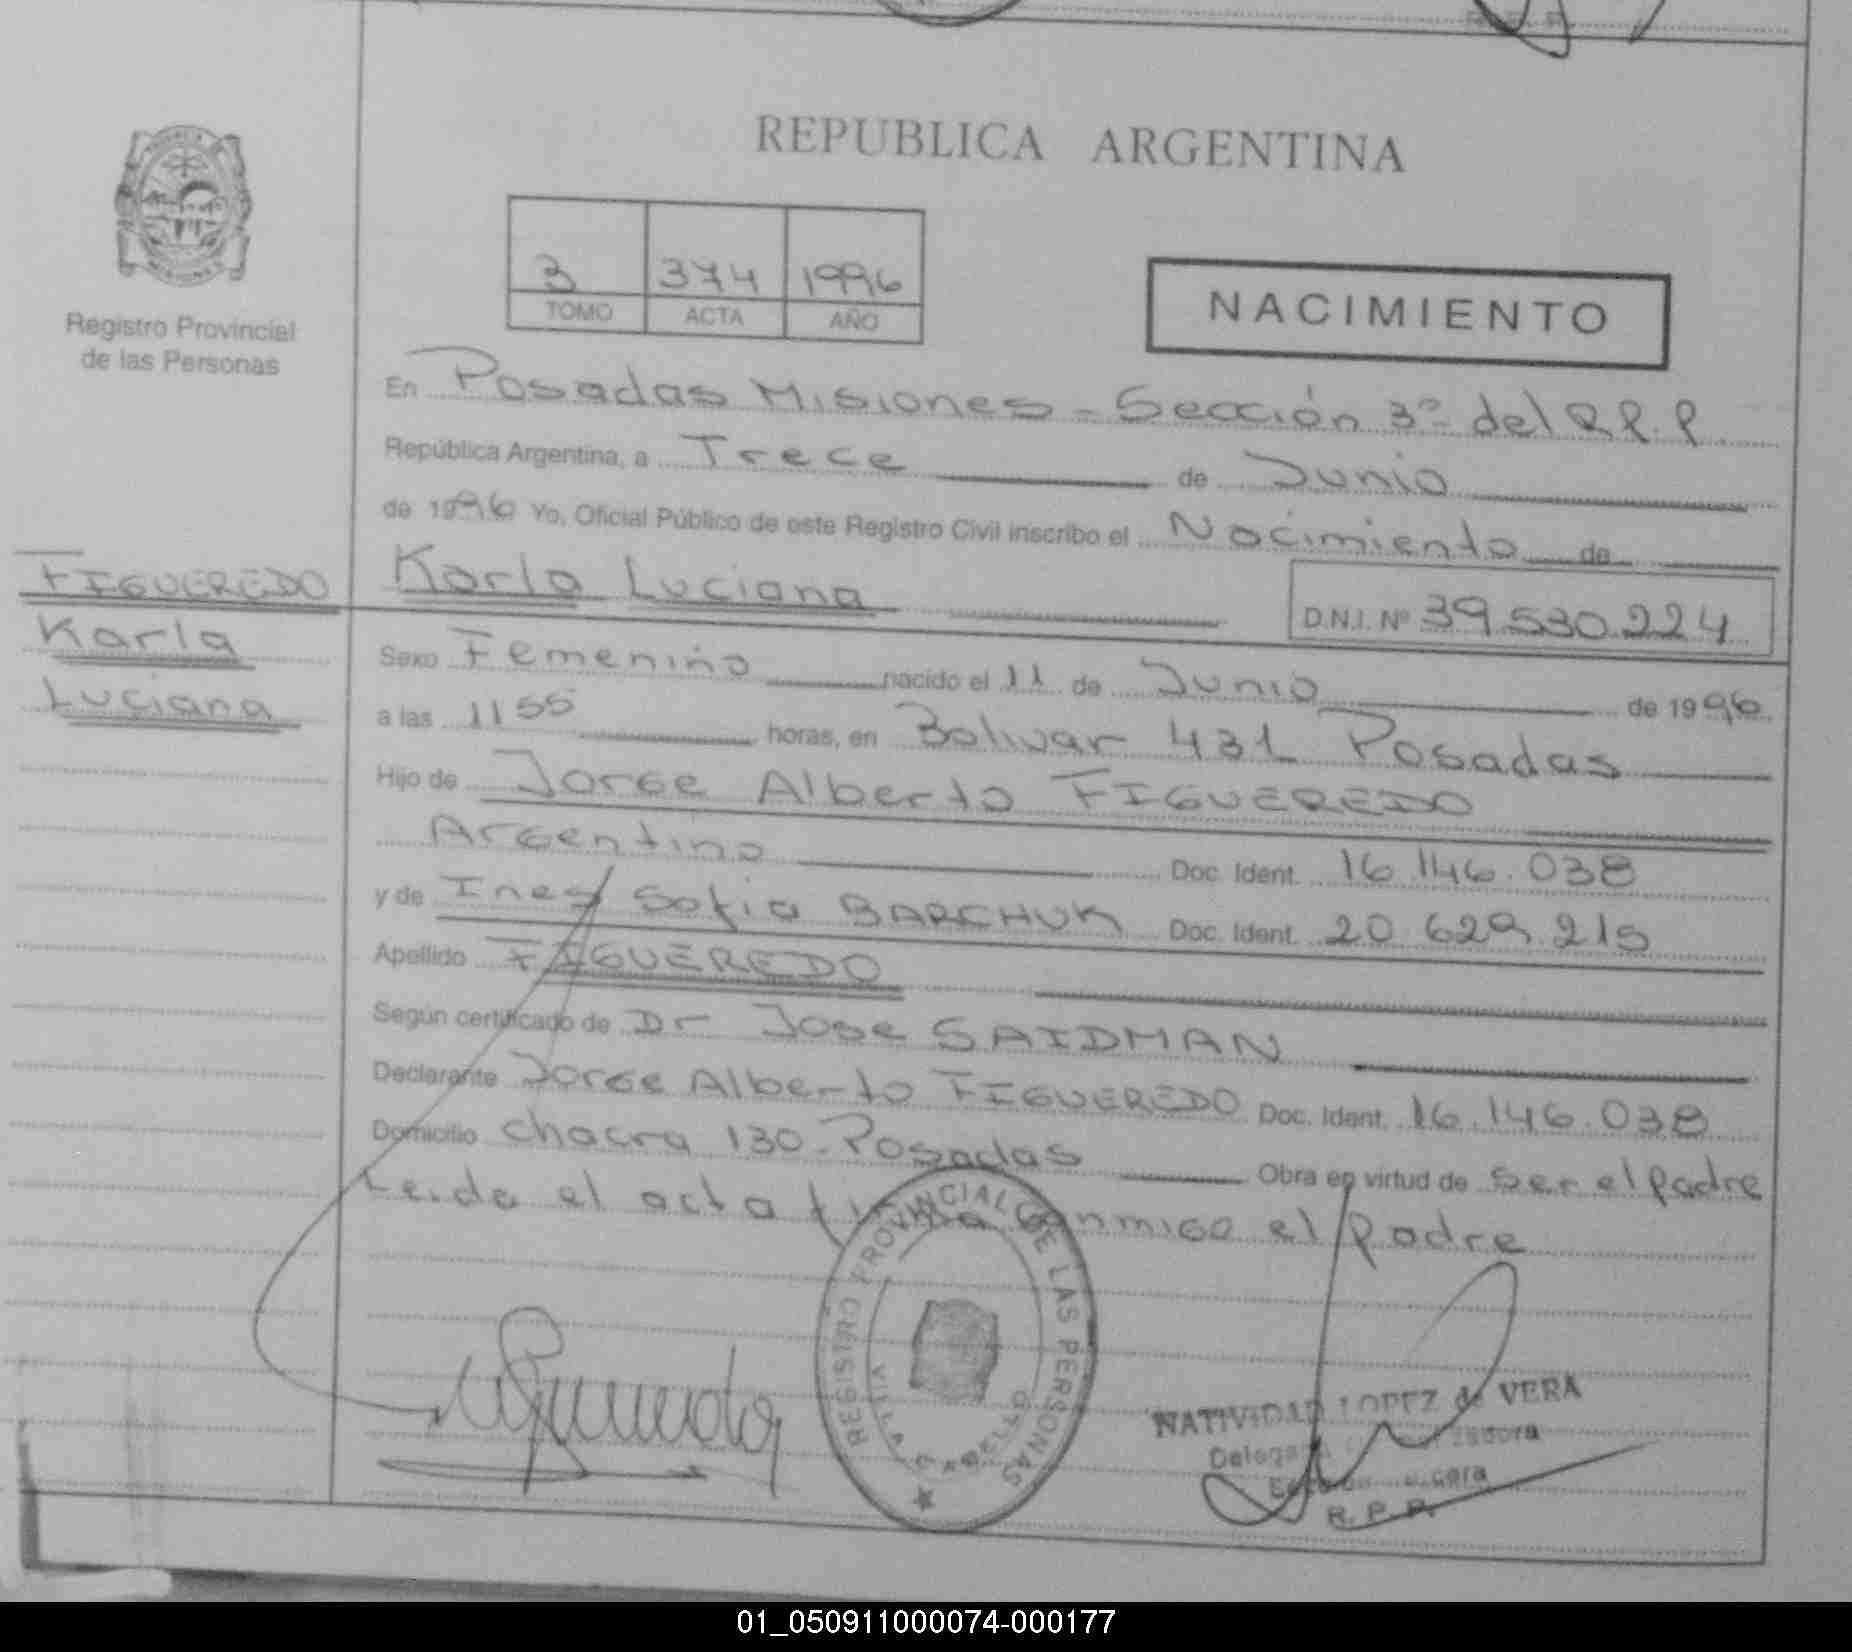 REPUBLICA ARGENTINA
3 374 1996
TOMO ACTA AÑO
NACIMIENTO
Registro Provincial
de las Personas
En Posadas Misiones - Sección 3º del R.P.P.
República Argentina, a Trece de Junio
de 1996 Yo, Oficial Público de este Registro Civil inscribo el Nacimiento de
FIGUEREDO
Karla
Luciana
Karla Luciana
D.N.I. Nº 39.530.224
Sexo Femenino nacido el 11 de Junio de 1996
a las 1155 horas, en Bolivar 431 Posadas
Hijo de Jorge Alberto FIGUEREDO
Argentino Doc. Ident. 16.146.038
y de Ines Sofia BARCHUK Doc. Ident. 20.629.215
Apellido FIGUEREDO
Según certificado de Dr Jose SAIDMAN
Declarante Jorge Alberto FIGUEREDO Doc. Ident. 16.146.038
Domicilio chacra 130 - Posadas Obra en virtud de ser el padre
Leida el acta firma conmigo el padre
REGISTRO PROVINCIAL DE LAS PERSONAS
VILLA CABELLO
NATIVIDAD LOPEZ de VERA
R. P. P.
01_050911000074-000177